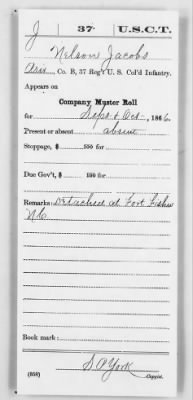 J 37 U.S.C.T.
Nelson Jacobs
Co. B, 37 Reg't U. S. Col'd Infantry.
Appears on
Company Muster Roll
for Sept & Oct, 1866
Present or absent absent
Stoppage, $ 100 for
Due Gov't, $ 100 for
Remarks: Detached at Fort Fisher
N.C.
Book mark:
S P York
(858) Copyist.